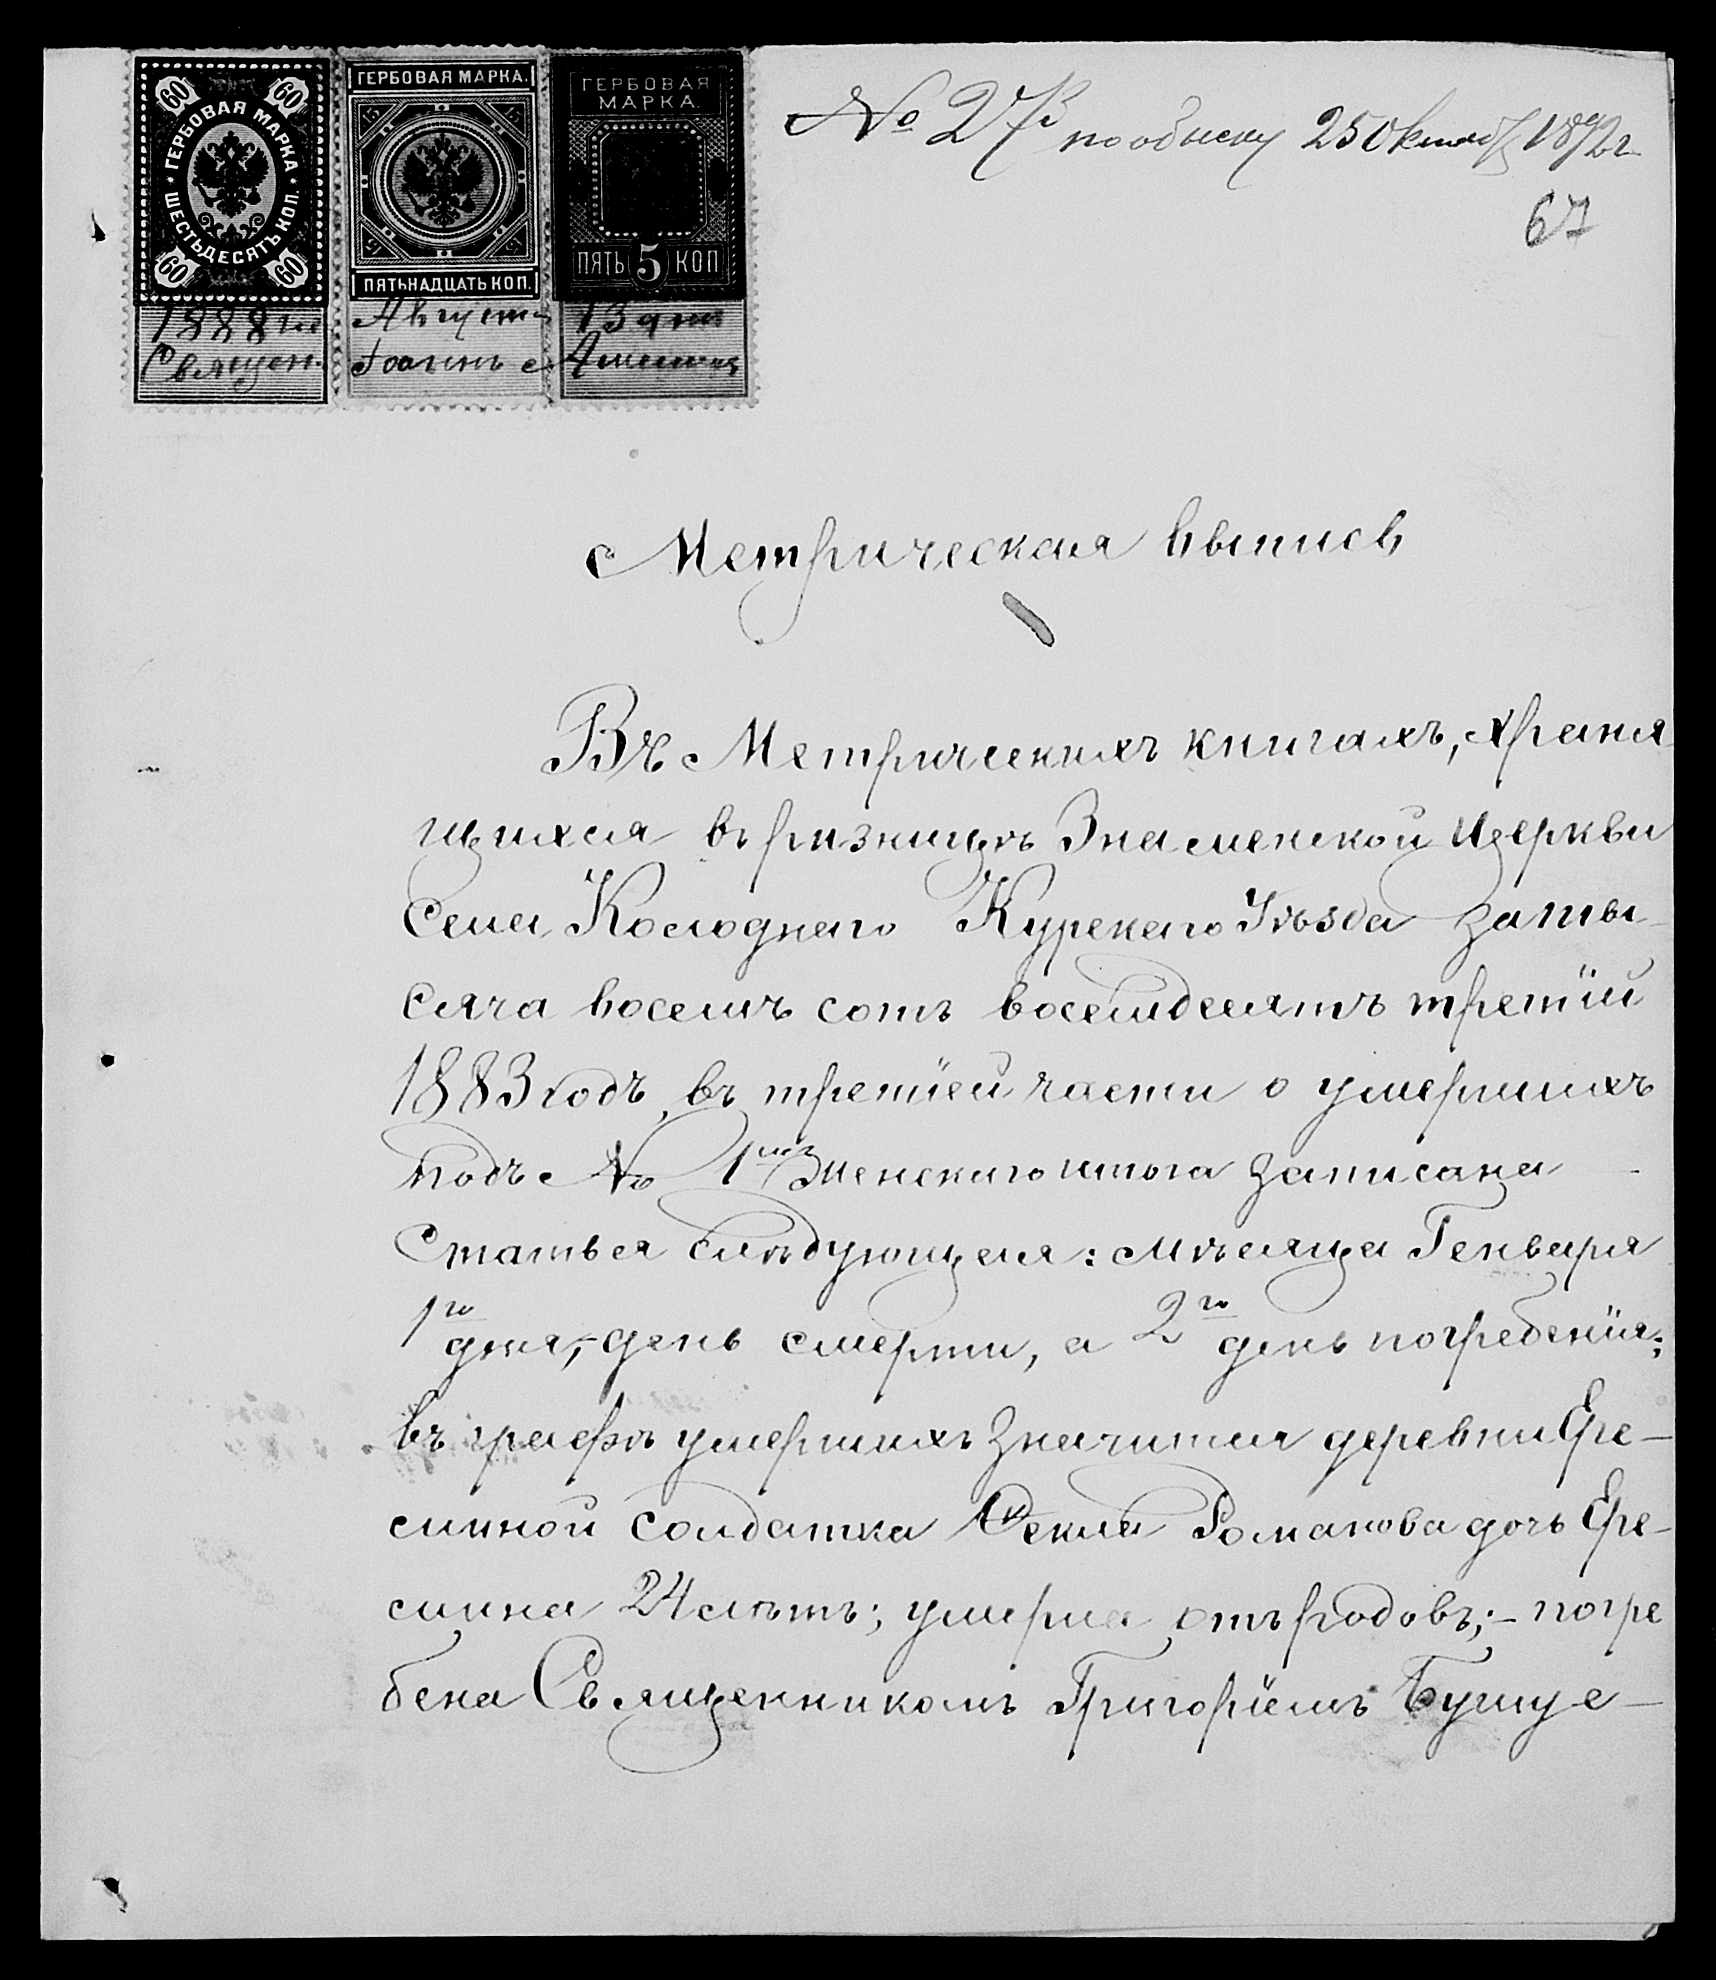 60 60
ГЕРБОВАЯ МАРКА
ШЕСТЬДЕСЯТЪ КОП.
60 60
ГЕРБОВАЯ МАРКА.
15 15
15 15
ПЯТЬНАДЦАТЬ КОП.
ГЕРБОВАЯ
МАРКА.
ПЯТЬ 5 КОП
1888 го Августа 13 дня
Священ. Іоаннъ
№ 27 по обыску 25 Октяб 1892 г
67
Метрическая выпись
Въ Метрическихъ книгахъ, храня
щихся въ ризницѣ Знаменской Церкви
Села Колоднаго Курскаго Уѣзда за ты-
сяча восемъ сотъ восемдесятъ третій
1883 годъ, въ третіей части о умершихъ
подъ № 1мъ женскаго итога записана
Статья слѣдующая: мѣсяца Генваря
1го дня,- день смерти, а 2го день погребенія;
въ графѣ умершихъ значится деревни Ере-
синой солдатка Фекла Романова дочь Ере-
сина 24 лѣтъ; умерла отъ родовъ;- погре
бена Священникомъ Григоріемъ Бушуе-